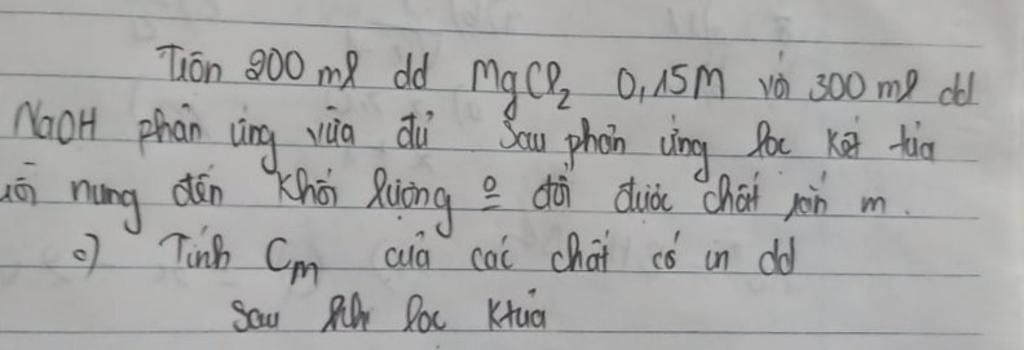 Trộn 200 ml dd MgCl₂ 0,15M với 300 ml dd
NaOH phản ứng vừa đủ Sau phản ứng lọc kết tủa
rồi nung đến khối lượng º đổi được chất rắn m.
c) Tính Cm của các chất có in dd
Sau khi lọc Ktủa